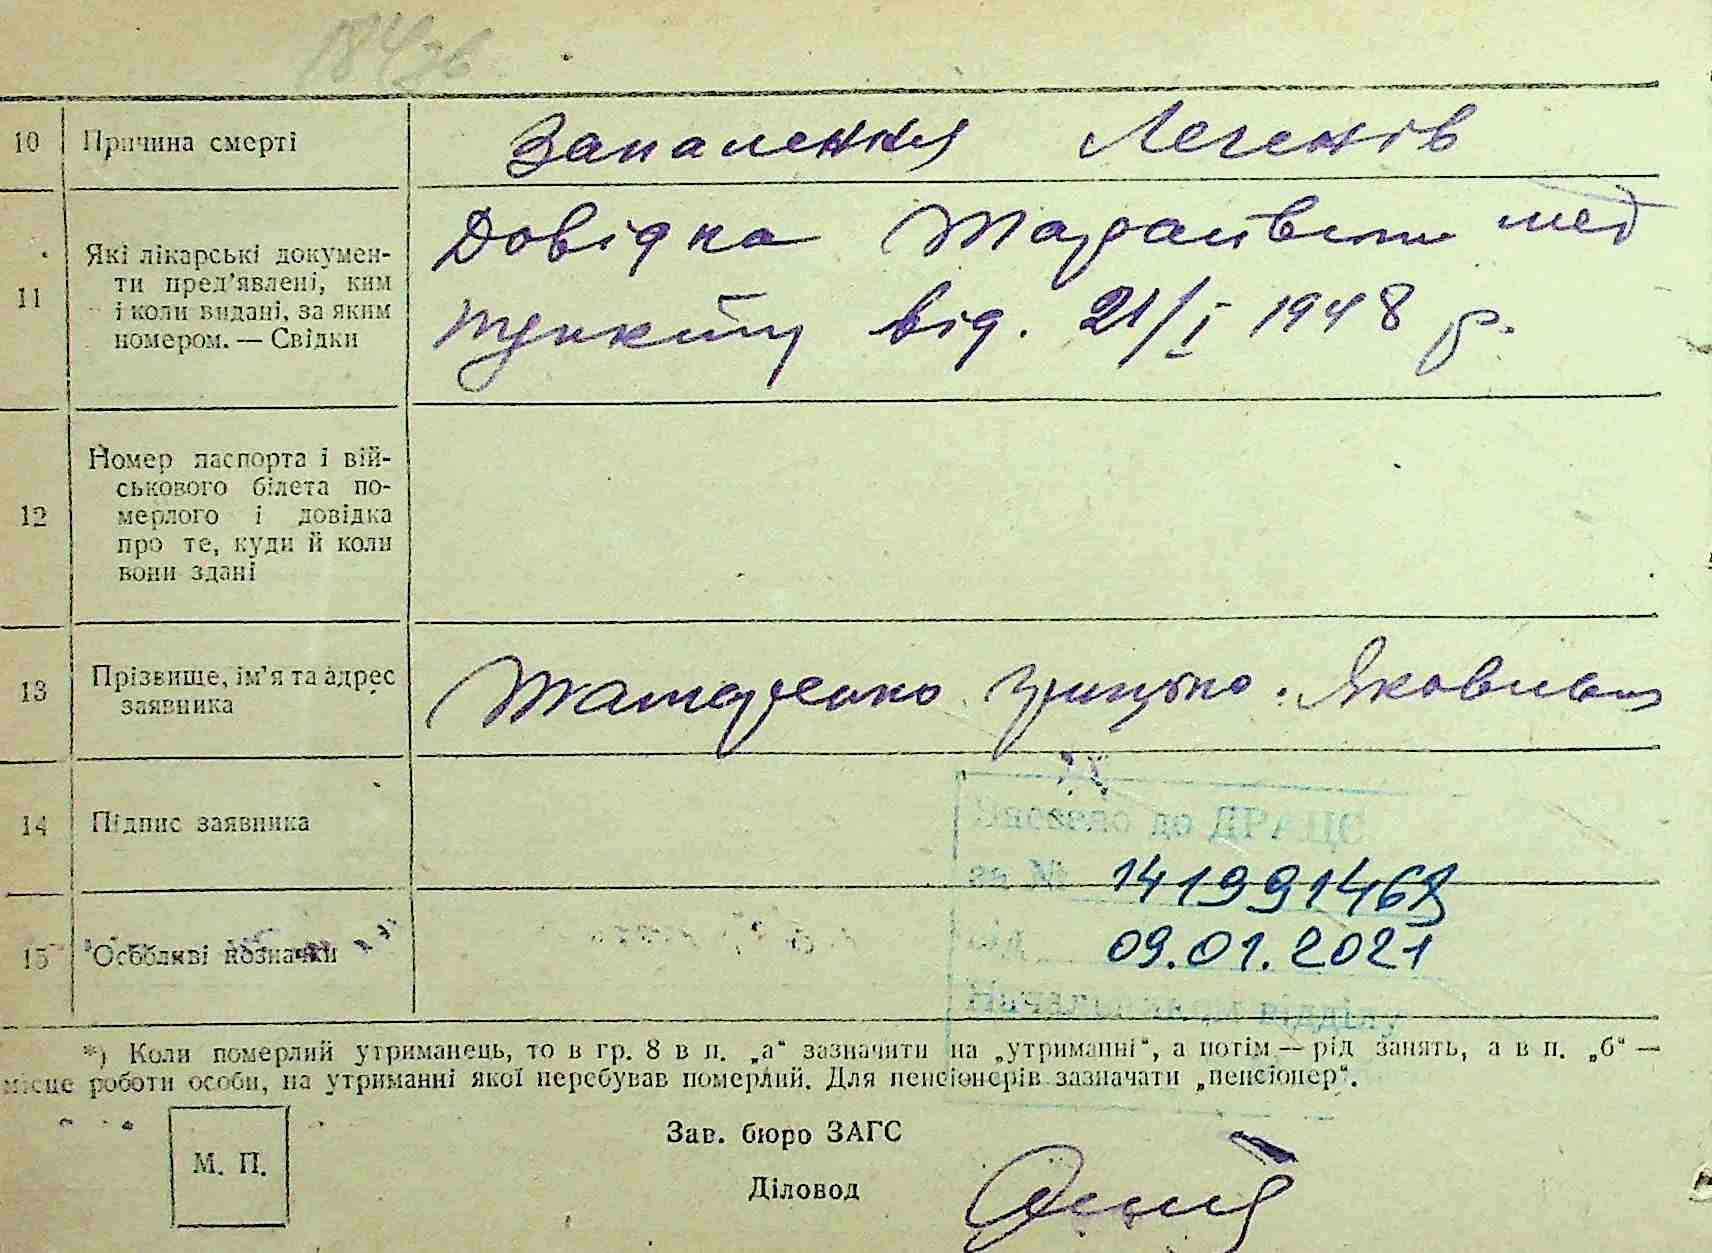 10 Причина смерті Запалення Легенів
11 Які лікарські докумен-
ти пред’явлені, ким
і коли видані, за яким
номером. — Свідки
Довідка мед
пункту від. 21/I 1948 р.
12 Номер паспорта і вій-
ськового білета по-
мерлого і довідка
про те, куди й коли
вони здані
13 Прізвище, ім’я та адрес
заявника
Татаренко Грицько. Якович
14 Підпис заявника
15 Особливі позначки
Внесено до ДРАЦС
за № 141991468
від 09.01.2021
Начальник відділу
*) Коли померлий утриманець, то в гр. 8 в п. „а“ зазначити на „утриманні“, а потім — рід занять, а в п. „б“ —
місце роботи особи, на утриманні якої перебував померлий. Для пенсіонерів зазначати „пенсіонер“.
Зав. бюро ЗАГС
М. П.
Діловод